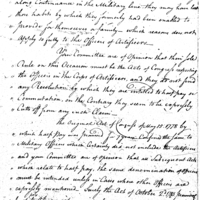 long Continuance in the Military line they may have lost
those habits by which they formerly had been enabled to
provide for themselves & family — which reasons do not
Apply so fully to the Officers of Artificers.
Your Committee are of Opinion that their Sole
Rule on this Occasion must be the Acts of Congress respecting
the Officers in the Corps of Artificers, and they do not find
any Resolution by which they are entitled to half pay or
Commutation, on the Contrary they seem to be expressly
cut off from any such Claim.
The original Act of Congress of May 15. 1778 by
which half pay was confined to
Military Officers which Certainly did not include the Artificers
and your Committee are of opinion that as Subsequent Acts
which relate to half pay, the same denomination of Officers
must be intended unless in Cases where other Officers are
expressly mentioned. Surely the Act of October